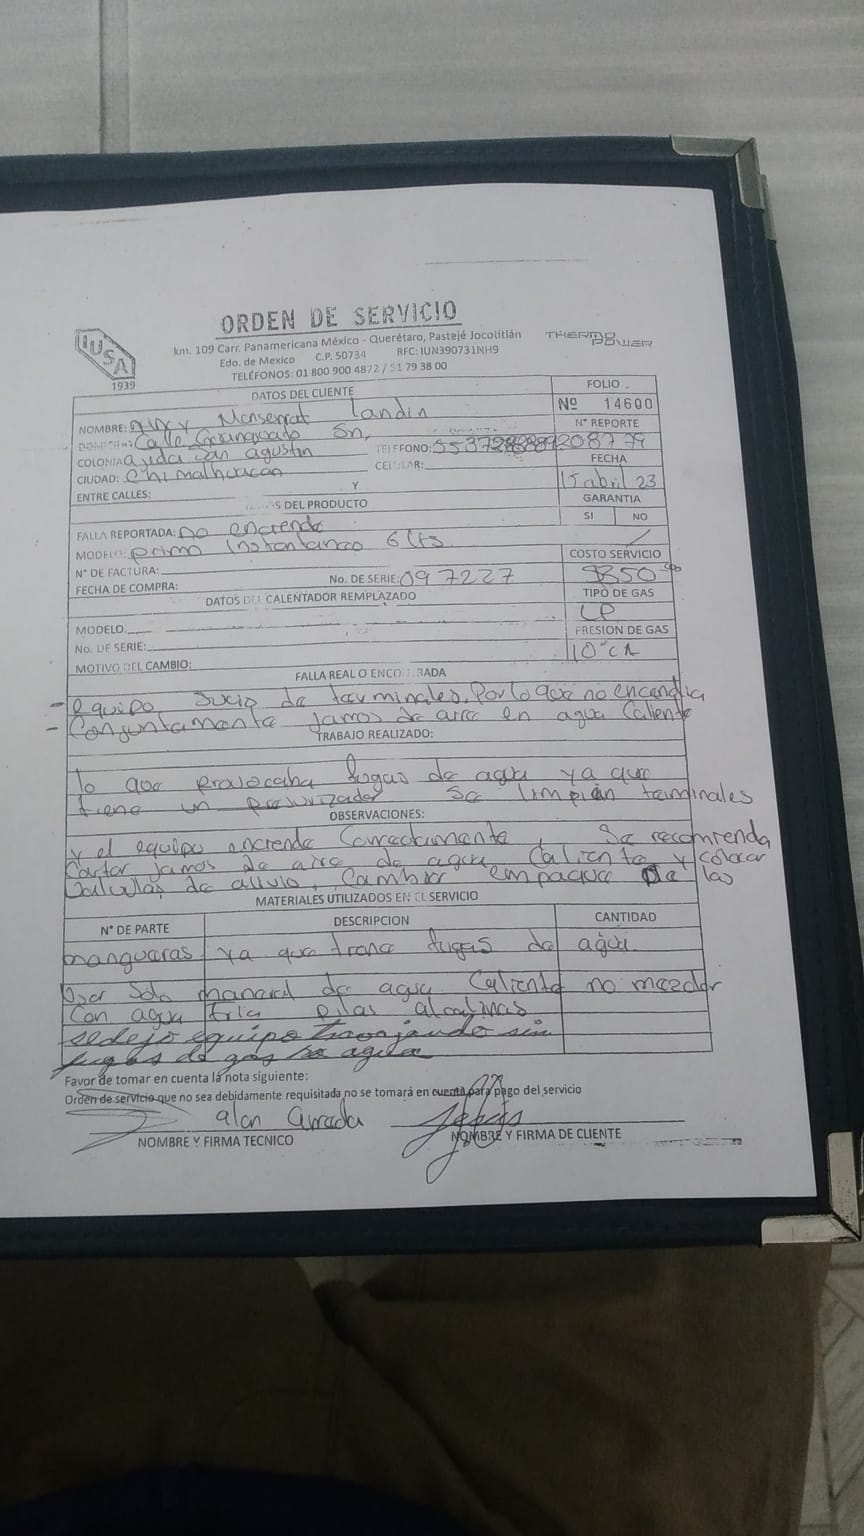 ORDEN DE SERVICIO
IUSA
1939
km. 109 Carr. Panamericana México - Querétaro, Pastejé Jocotitlán
Edo. de Mexico C.P. 50734 RFC: IUN390731NH9
TELÉFONOS: 01 800 900 4872 / 51 79 38 00
THERMO POWER
DATOS DEL CLIENTE
FOLIO
Nº 14600
NOMBRE: Monserrat landin
Nº REPORTE
9208779
Calle Guanajuato Sn,
TELEFONO:
COLONIA ejido san agustin
CELULAR:
FECHA
CIUDAD: Chimalhuacan
15 abril 23
ENTRE CALLES: Y
GARANTIA
SI NO
DEL PRODUCTO
FALLA REPORTADA: no enciende
MODELO: primo instantaneo 6 lts
COSTO SERVICIO
$350
N° DE FACTURA:
No. DE SERIE: 097227
FECHA DE COMPRA:
TIPO DE GAS
LP
DATOS DEL CALENTADOR REMPLAZADO
MODELO.
PRESION DE GAS
No. DE SERIE:
MOTIVO DEL CAMBIO:
FALLA REAL O ENCONTRADA
- equipo sucio de terminales, Por lo que no encendia
- Conjuntamente jamos de aire en agua Caliente
TRABAJO REALIZADO:
lo que provocaba fugas de agua ya que
tiene un presurizador Se limpian terminales
OBSERVACIONES:
y el equipo enciende Correctamente, Se recomienda
Cortar jamos de aire de agua Caliente y colocar
Valvulas de alivio, Cambiar empaque De las
MATERIALES UTILIZADOS EN EL SERVICIO
N° DE PARTE DESCRIPCION CANTIDAD
mangueras ya que tiene fugas de agua
Usar Solo maneral de agua Caliente no mezclar
Con agua fria pilas alcalinas
se dejo equipo trabajando sin
fugas de gas no agua
Favor de tomar en cuenta la nota siguiente:
Orden de servicio que no sea debidamente requisitada no se tomará en cuenta para pago del servicio
alan
NOMBRE Y FIRMA TECNICO
NOMBRE Y FIRMA DE CLIENTE